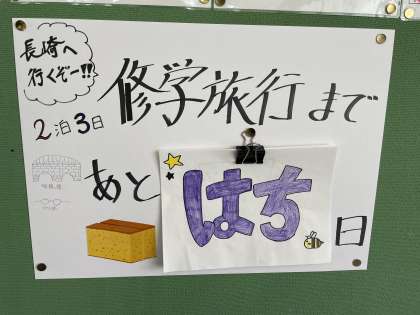 長崎へ
行くぞー!!
修学旅行まで
2泊3日
あと
はち
日